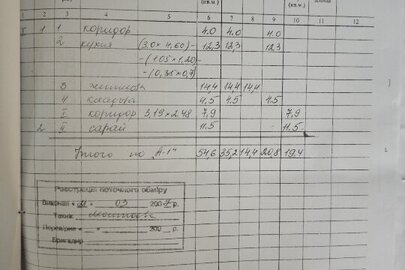 (кв.м.)
1 2 3 4 5 6 7 8 9 10 11 12
I 1 1 коридор 4.0 4.0 4.0
2 кухня (3,0×4,60)- 12,3 12,3 12,3
-(1,05×1,20)
-(0,35×0,7)
3 14,4 14,4 14,4
4 4.5 4.5 4.5
I коридор 3,19×2,48 7,9 7,9
2 II сарай 11.5 11.5
Итого по "А-1" 54,6 35,2 14,4 20,8 19,4
Реєстрація поточного обміру
Виконав "11" 03 2007 р.
Технік
Перевірив " " 200 р.
Бригадир